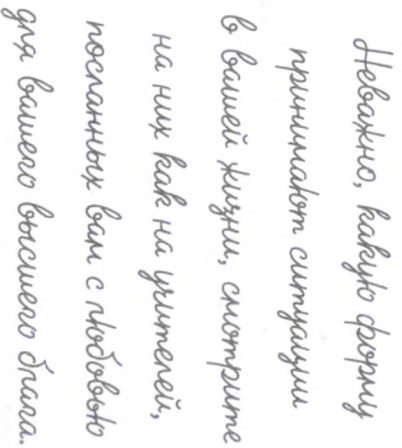 Неважно, какую форму
принимают ситуации
в вашей жизни, смотрите
на них как на учителей,
посланных вам с любовью
для вашего высшего блага.